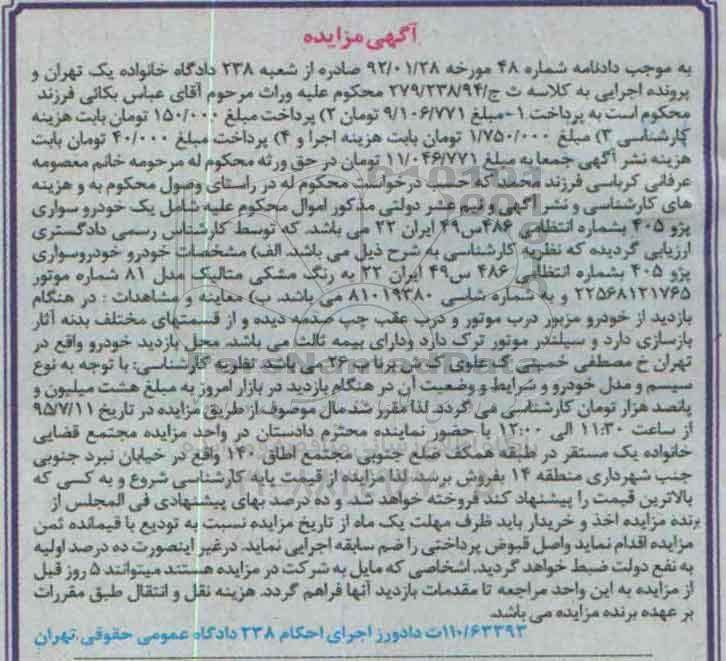 آگهی مزایده
به موجب دادنامه شماره ۴۸ مورخه ۹۲/۰۱/۲۸ صادره از شعبه ۲۳۸ دادگاه خانواده یک تهران و
پرونده اجرایی به کلاسه ث ج/۲۷۹/۲۳۸/۹۴ محکوم علیه وراث مرحوم آقای عباس بکائی فرزند
محکوم است به پرداخت ۱-مبلغ ۹/۱۰۶/۷۷۱ تومان ۲) پرداخت مبلغ ۱۵۰/۰۰۰ تومان بابت هزینه
کارشناسی ۳) مبلغ ۱/۷۵۰/۰۰۰ تومان بابت هزینه اجرا و ۴) پرداخت مبلغ ۴۰/۰۰۰ تومان بابت
هزینه نشر آگهی جمعا به مبلغ ۱۱/۰۴۶/۷۷۱ تومان در حق ورثه محکوم له مرحومه خانم معصومه
عرفانی کرباسی فرزند محمد که حسب درخواست محکوم له در راستای وصول محکوم به و هزینه
های کارشناسی و نشر آگهی و نیم عشر دولتی مذکور اموال محکوم علیه شامل یک خودرو سواری
پژو ۴۰۵ بشماره انتظامی ۴۸۶س۴۹ ایران ۲۲ می باشد. که توسط کارشناس رسمی دادگستری
ارزیابی گردیده که نظریه کارشناسی به شرح ذیل می باشد. الف) مشخصات خودرو خودروسواری
پژو ۴۰۵ بشماره انتظامی ۴۸۶ س۴۹ ایران ۲۲ به رنگ مشکی متالیک مدل ۸۱ شماره موتور
۲۲۵۶۸۱۲۱۷۶۵ و به شماره شاسی ۸۱۰۱۹۳۸۰ می باشد. ب) معاینه و مشاهدات : در هنگام
بازدید از خودرو مزبور درب موتور و درب عقب چپ صدمه دیده و از قسمتهای مختلف بدنه آثار
بازسازی دارد و سیلندر موتور ترک دارد ودارای بیمه ثالث می باشد. محل بازدید خودرو واقع در
تهران خ مصطفی خمینی ک علوی ک بن برنا پ ۲۶ می باشد. نظریه کارشناسی: با توجه به نوع
سیسم و مدل خودرو و شرایط و وضعیت آن در هنگام بازدید در بازار امروز به مبلغ هشت میلیون و
پانصد هزار تومان کارشناسی می گردد. لذا مقرر شد مال موصوف از طریق مزایده در تاریخ ۹۵/۷/۱۱
از ساعت ۱۱:۳۰ الی ۱۲:۰۰ با حضور نماینده محترم دادستان در واحد مزایده مجتمع قضایی
خانواده یک مستقر در طبقه همکف ضلع جنوبی مجتمع اطاق ۱۴۰ واقع در خیابان نبرد جنوبی
جنب شهرداری منطقه ۱۴ بفروش برسد. لذا مزایده از قیمت پایه کارشناسی شروع و به کسی که
بالاترین قیمت را پیشنهاد کند فروخته خواهد شد. و ده درصد بهای پیشنهادی فی المجلس از
برنده مزایده اخذ و خریدار باید ظرف مهلت یک ماه از تاریخ مزایده نسبت به تودیع با قیمانده ثمن
مزایده اقدام نماید واصل قبوض پرداختی را ضم سابقه اجرایی نماید. درغیر اینصورت ده درصد اولیه
به نفع دولت ضبط خواهد گردید. اشخاصی که مایل به شرکت در مزایده هستند میتوانند ۵ روز قبل
از مزایده به این واحد مراجعه تا مقدمات بازدید آنها فراهم گردد. هزینه نقل و انتقال طبق مقررات
بر عهده برنده مزایده می باشد.
۱۱۰/۶۳۳۹۳ت دادورز اجرای احکام ۲۳۸ دادگاه عمومی حقوقی تهران